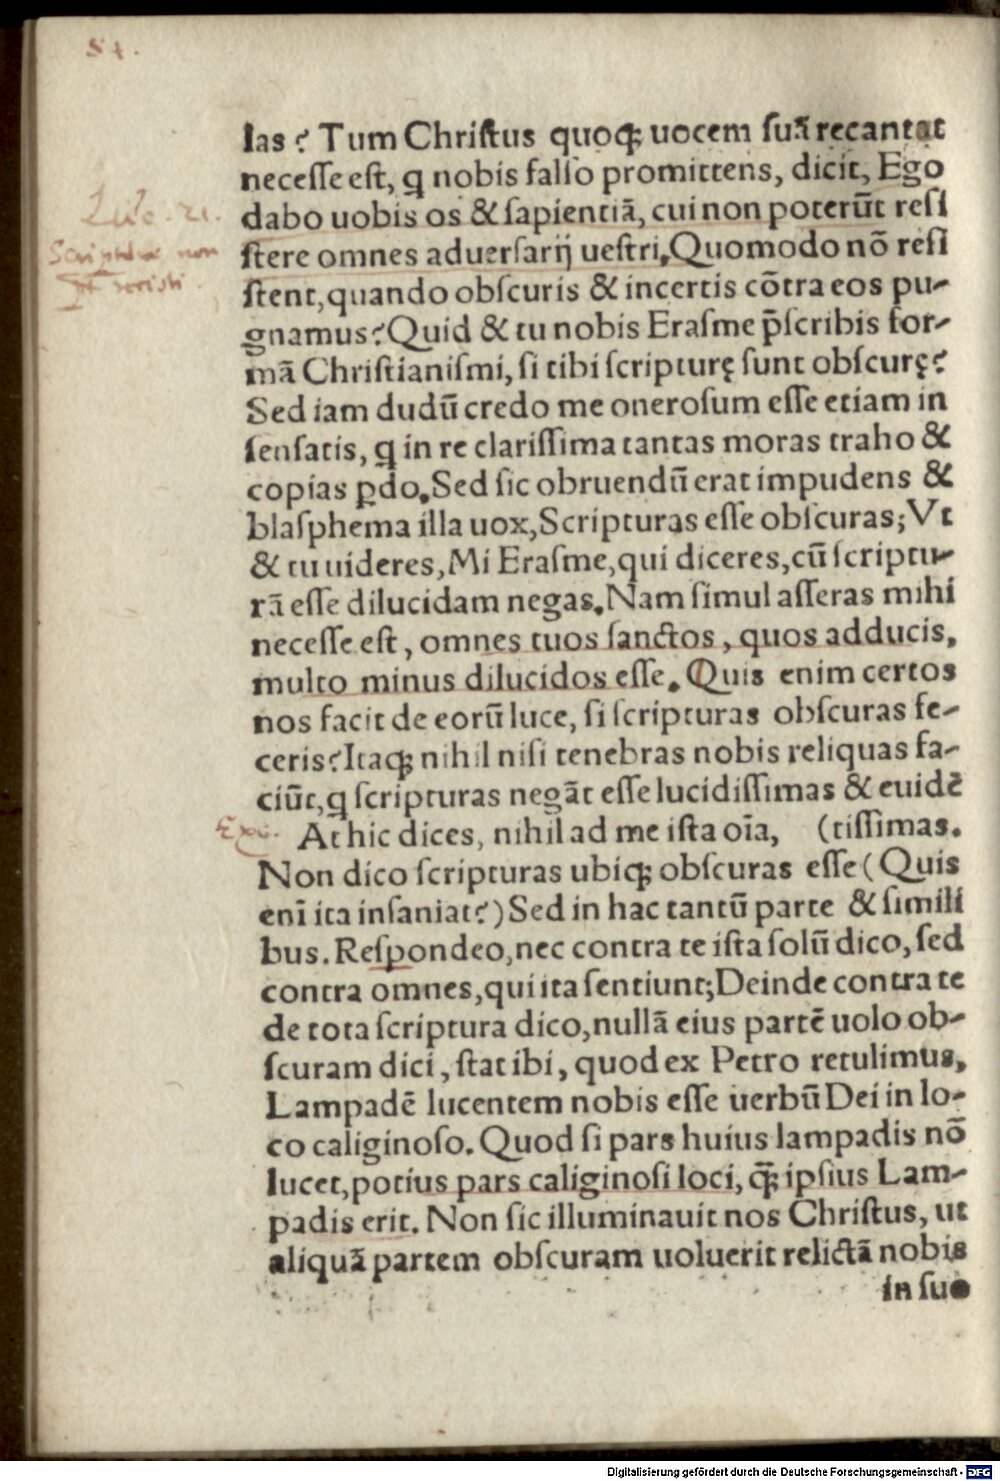 84.
las? Tum Christus quoqꝫ uocem suã recantat
necesse est, ꝗ nobis falso promittens, dicit, Ego
dabo uobis os & sapientiã, cui non poterũt resi
stere omnes aduersarij uestri. Quomodo nõ resi
Luc. 21.
stent, quando obscuris & incertis cõtra eos pu-
Scripturae non
gnamus? Quid & tu nobis Erasme p̃scribis for-
mã Christianismi, si tibi scripturę sunt obscurę?
Sed iam dudũ credo me onerosum esse etiam in
sensatis, ꝗ in re clarissima tantas moras traho &
copias ꝑdo. Sed sic obruendũ erat impudens &
blasphema illa uox, Scripturas esse obscuras; Vt
& tu uideres, Mi Erasme, qui diceres, cũ scriptu-
rã esse dilucidam negas. Nam simul asseras mihi
necesse est, omnes tuos sanctos, quos adducis,
multo minus dilucidos esse. Quis enim certos
nos facit de eorũ luce, si scripturas obscuras fe-
ceris? Itaqꝫ nihil nisi tenebras nobis reliquas fa-
ciũt, ꝗ scripturas negãt esse lucidissimas & euidẽ
At hic dices, nihil ad me ista oĩa, (tissimas.
Non dico scripturas ubiqꝫ obscuras esse (Quis
enĩ ita insaniat?) Sed in hac tantũ parte & simili
bus. Respondeo, nec contra te ista solũ dico, sed
contra omnes, qui ita sentiunt; Deinde contra te
de tota scriptura dico, nullã eius partẽ uolo ob-
scuram dici, stat ibi, quod ex Petro retulimus,
Lampadẽ lucentem nobis esse uerbũ Dei in lo-
co caliginoso. Quod si pars huius lampadis nõ
lucet, potius pars caliginosi loci, q̃ꝫ ipsius Lam-
padis erit. Non sic illuminauit nos Christus, ut
aliquã partem obscuram uoluerit relictã nobis
in suo
Digitalisierung gefördert durch die Deutsche Forschungsgemeinschaft - DFG